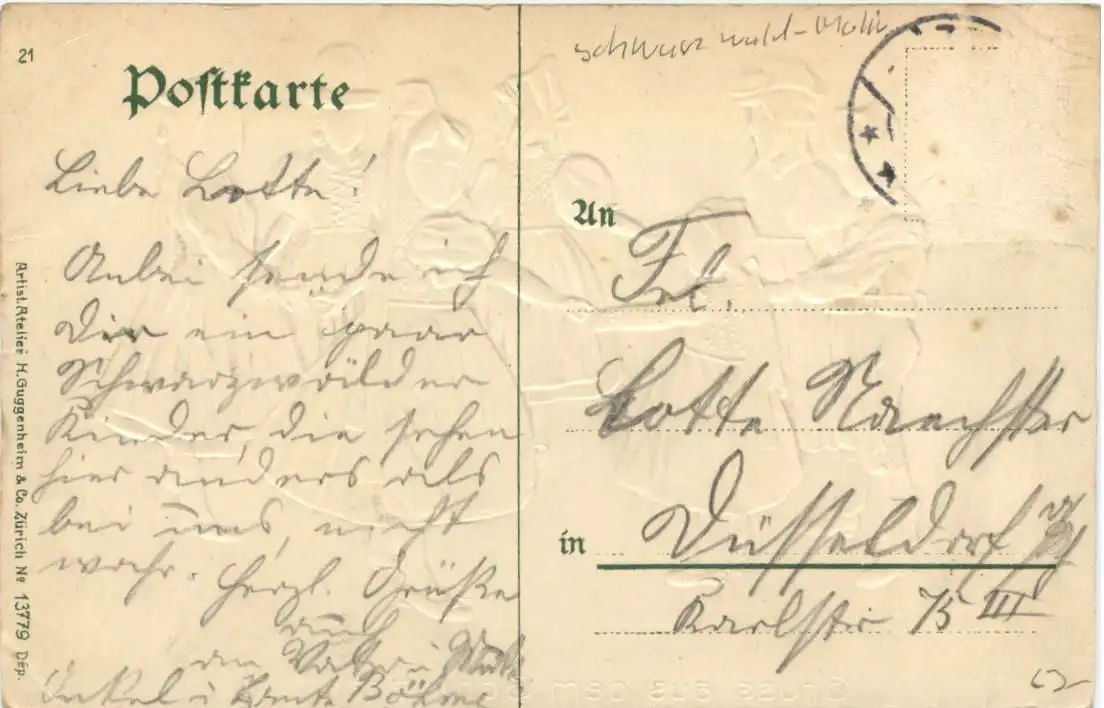 21
Postkarte
Liebe Lotte!
Anbei sende ich
Dir ein paar
Schwarzwälder
Kinder, die sehen
hier anders als
bei uns, nicht
wahr. Herzl. Grüße
auch
an Vater u.
Onkel u Tante Böhme
Artist. Atelier H. Guggenheim & Co. Zürich No 13779 Dép.
An
Frl.
Lotte
in Düsseldorf
Karlstr 75 III